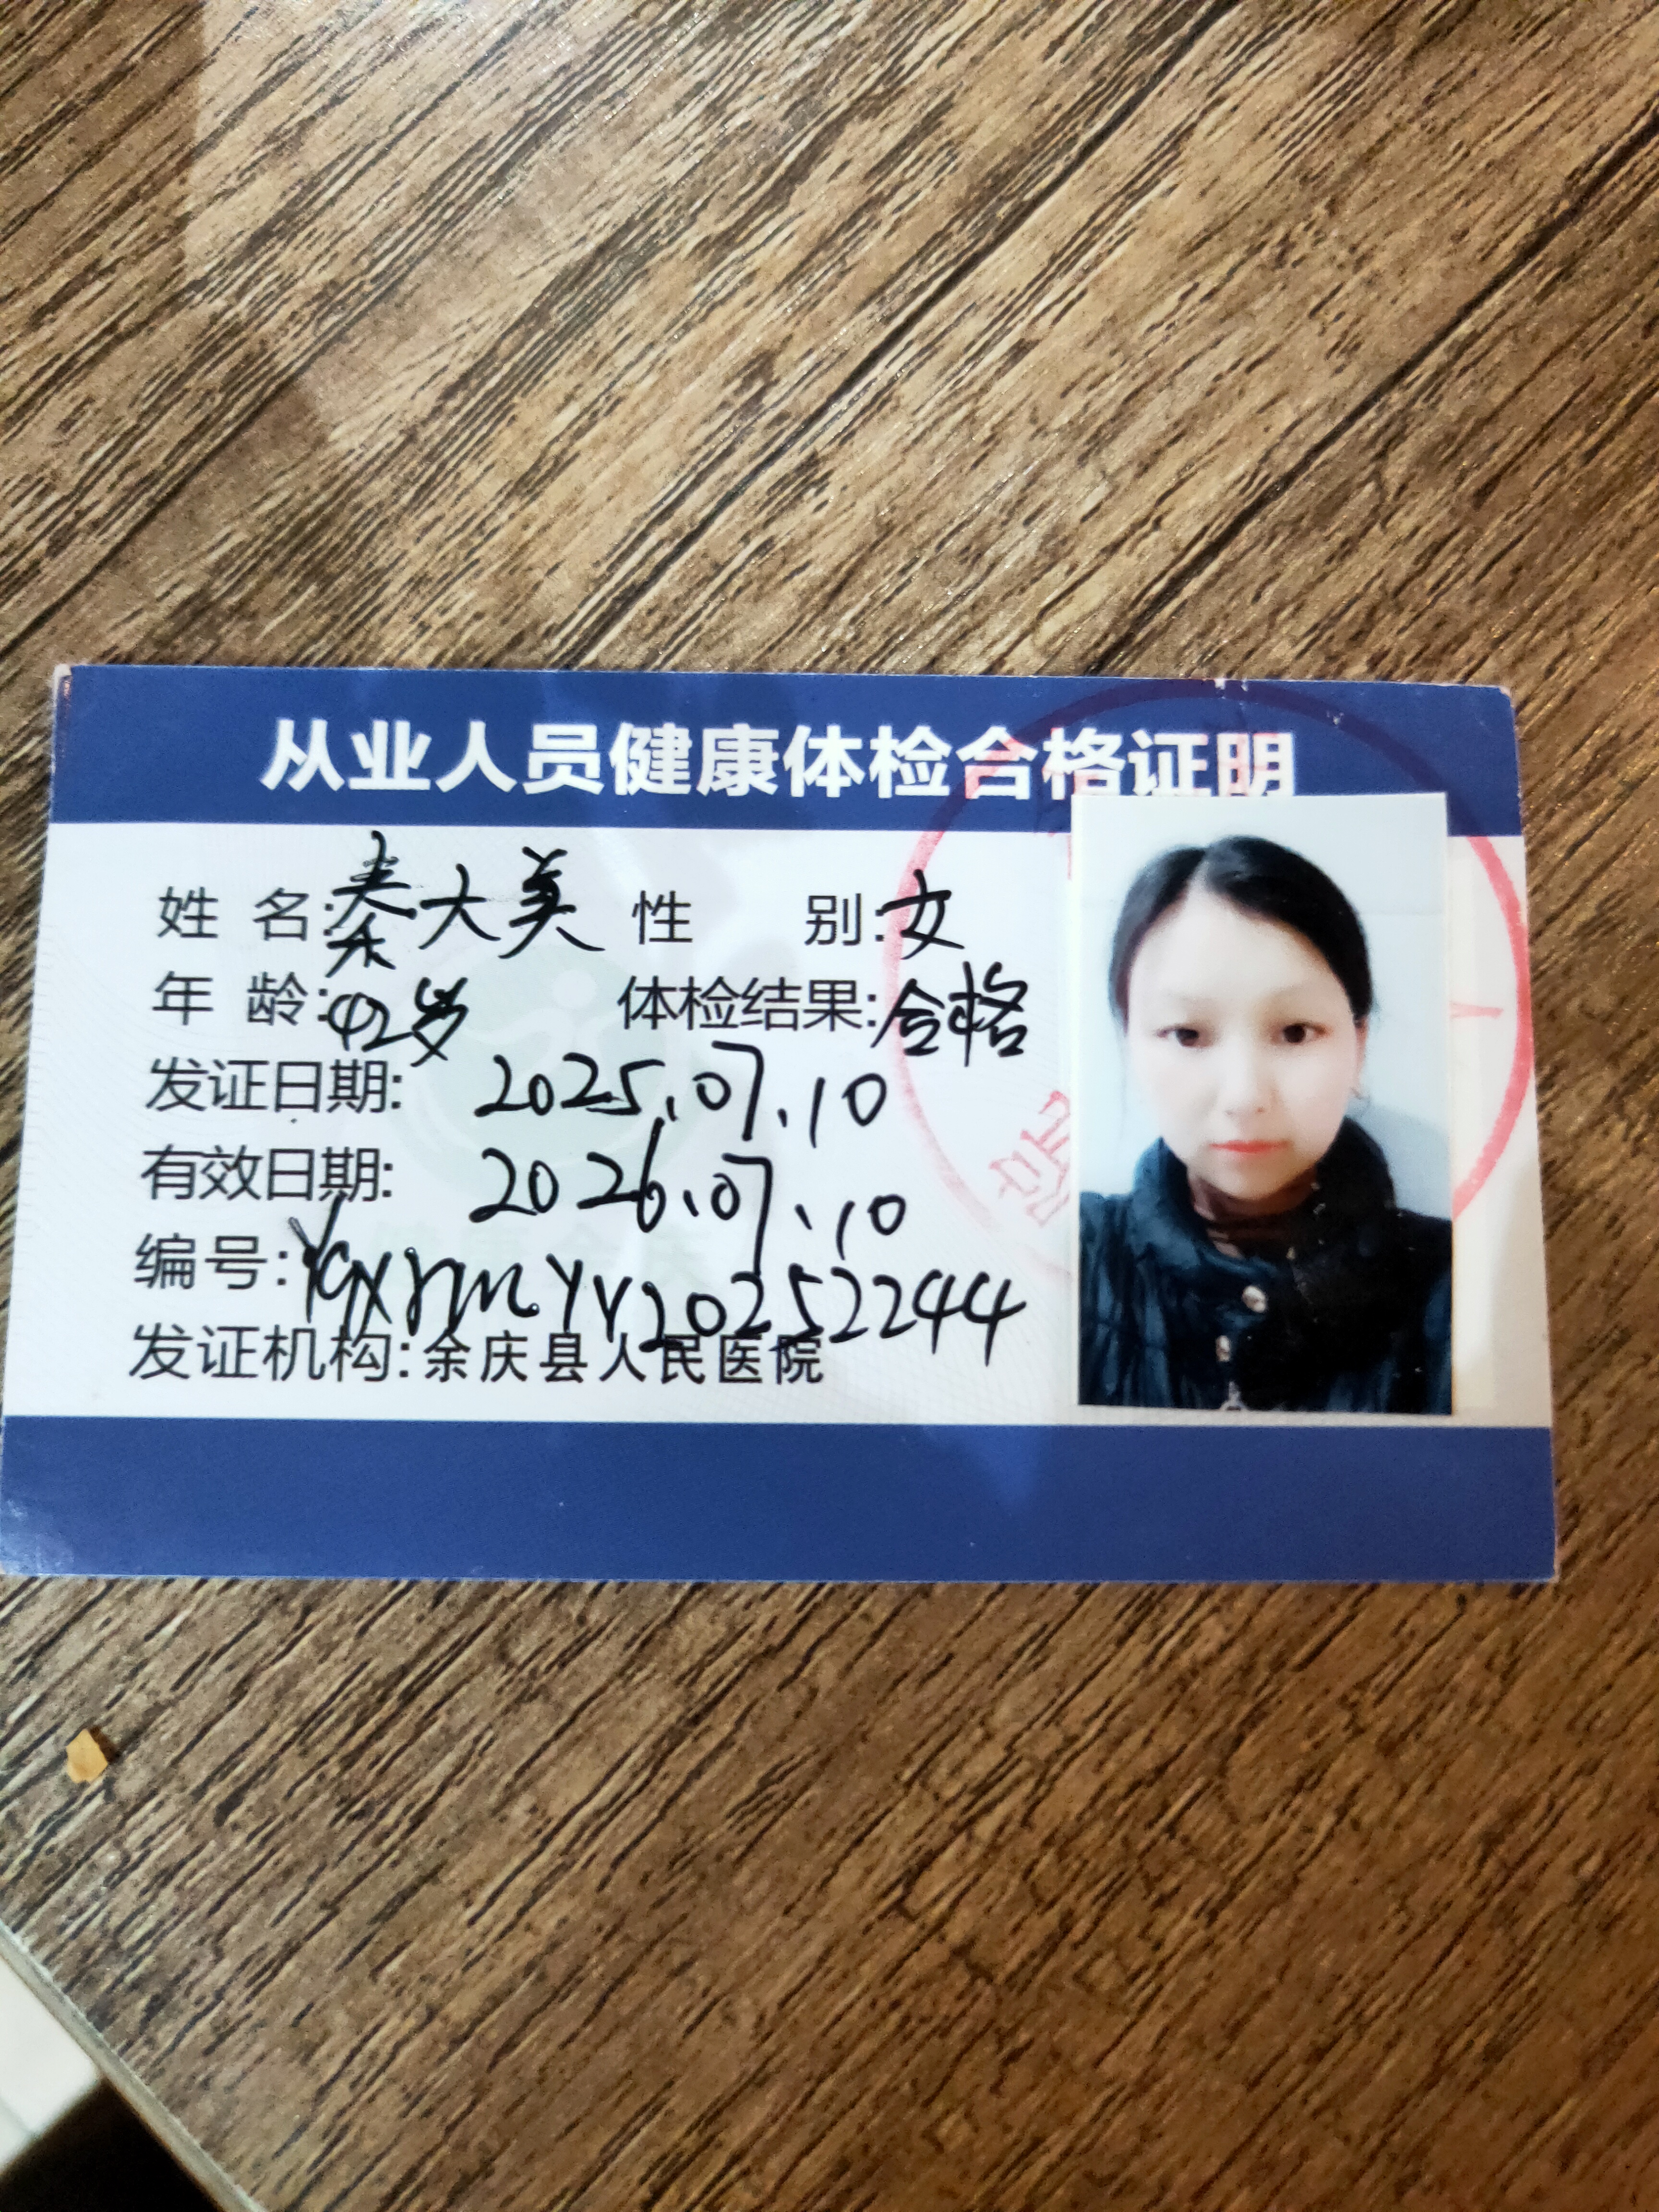 从业人员健康体检合格证明
姓 名:秦大美 性 别:女
年 龄:42岁 体检结果:合格
发证日期: 2025.07.10
有效日期: 2026.07.10
编号:YqxrmYY20252244
发证机构:余庆县人民医院
院
人